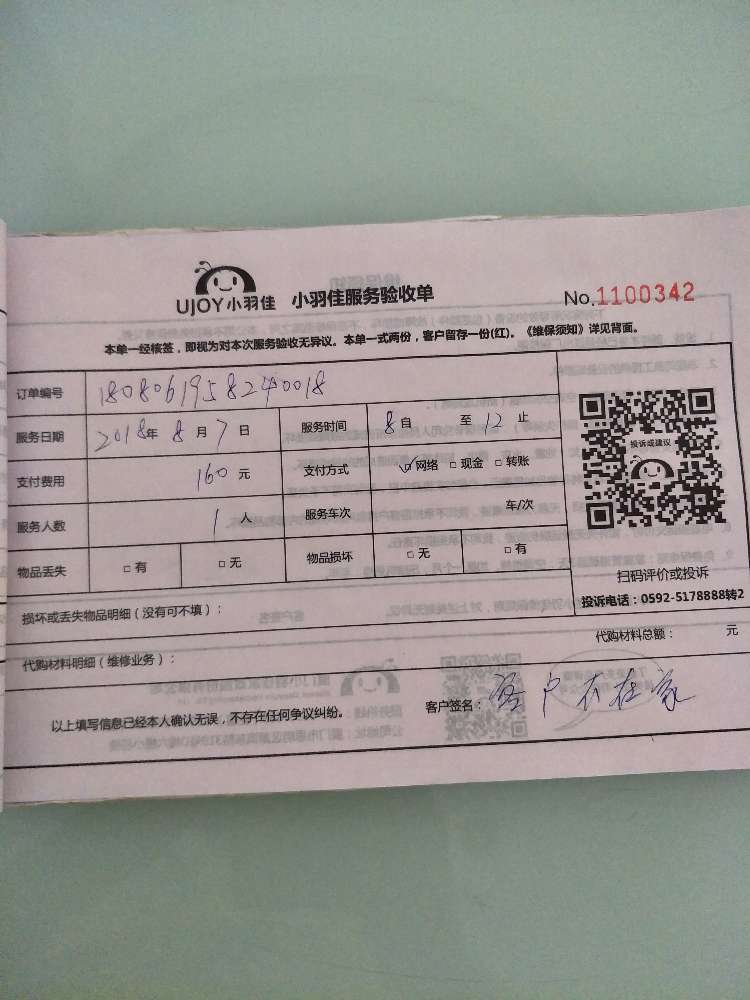 UJOY小羽佳 小羽佳服务验收单 No.1100342
本单一经核签，即视为对本次服务验收无异议。本单一式两份，客户留存一份(红)。《维保须知》详见背面。
订单编号 1808061958240018
服务日期 2018年 8月 7日 服务时间 8自 至 12止
支付费用 160元 支付方式 ☑网络 □现金 □转账
服务人数 1人 服务车次 车/次
物品丢失 □有 □无 物品损坏 □无 □有
投诉或建议
扫码评价或投诉
投诉电话：0592-5178888转2
损坏或丢失物品明细（没有可不填）：
代购材料明细（维修业务）： 代购材料总额： 元
以上填写信息已经本人确认无误，不存在任何争议纠纷。 客户签名：客户不在家